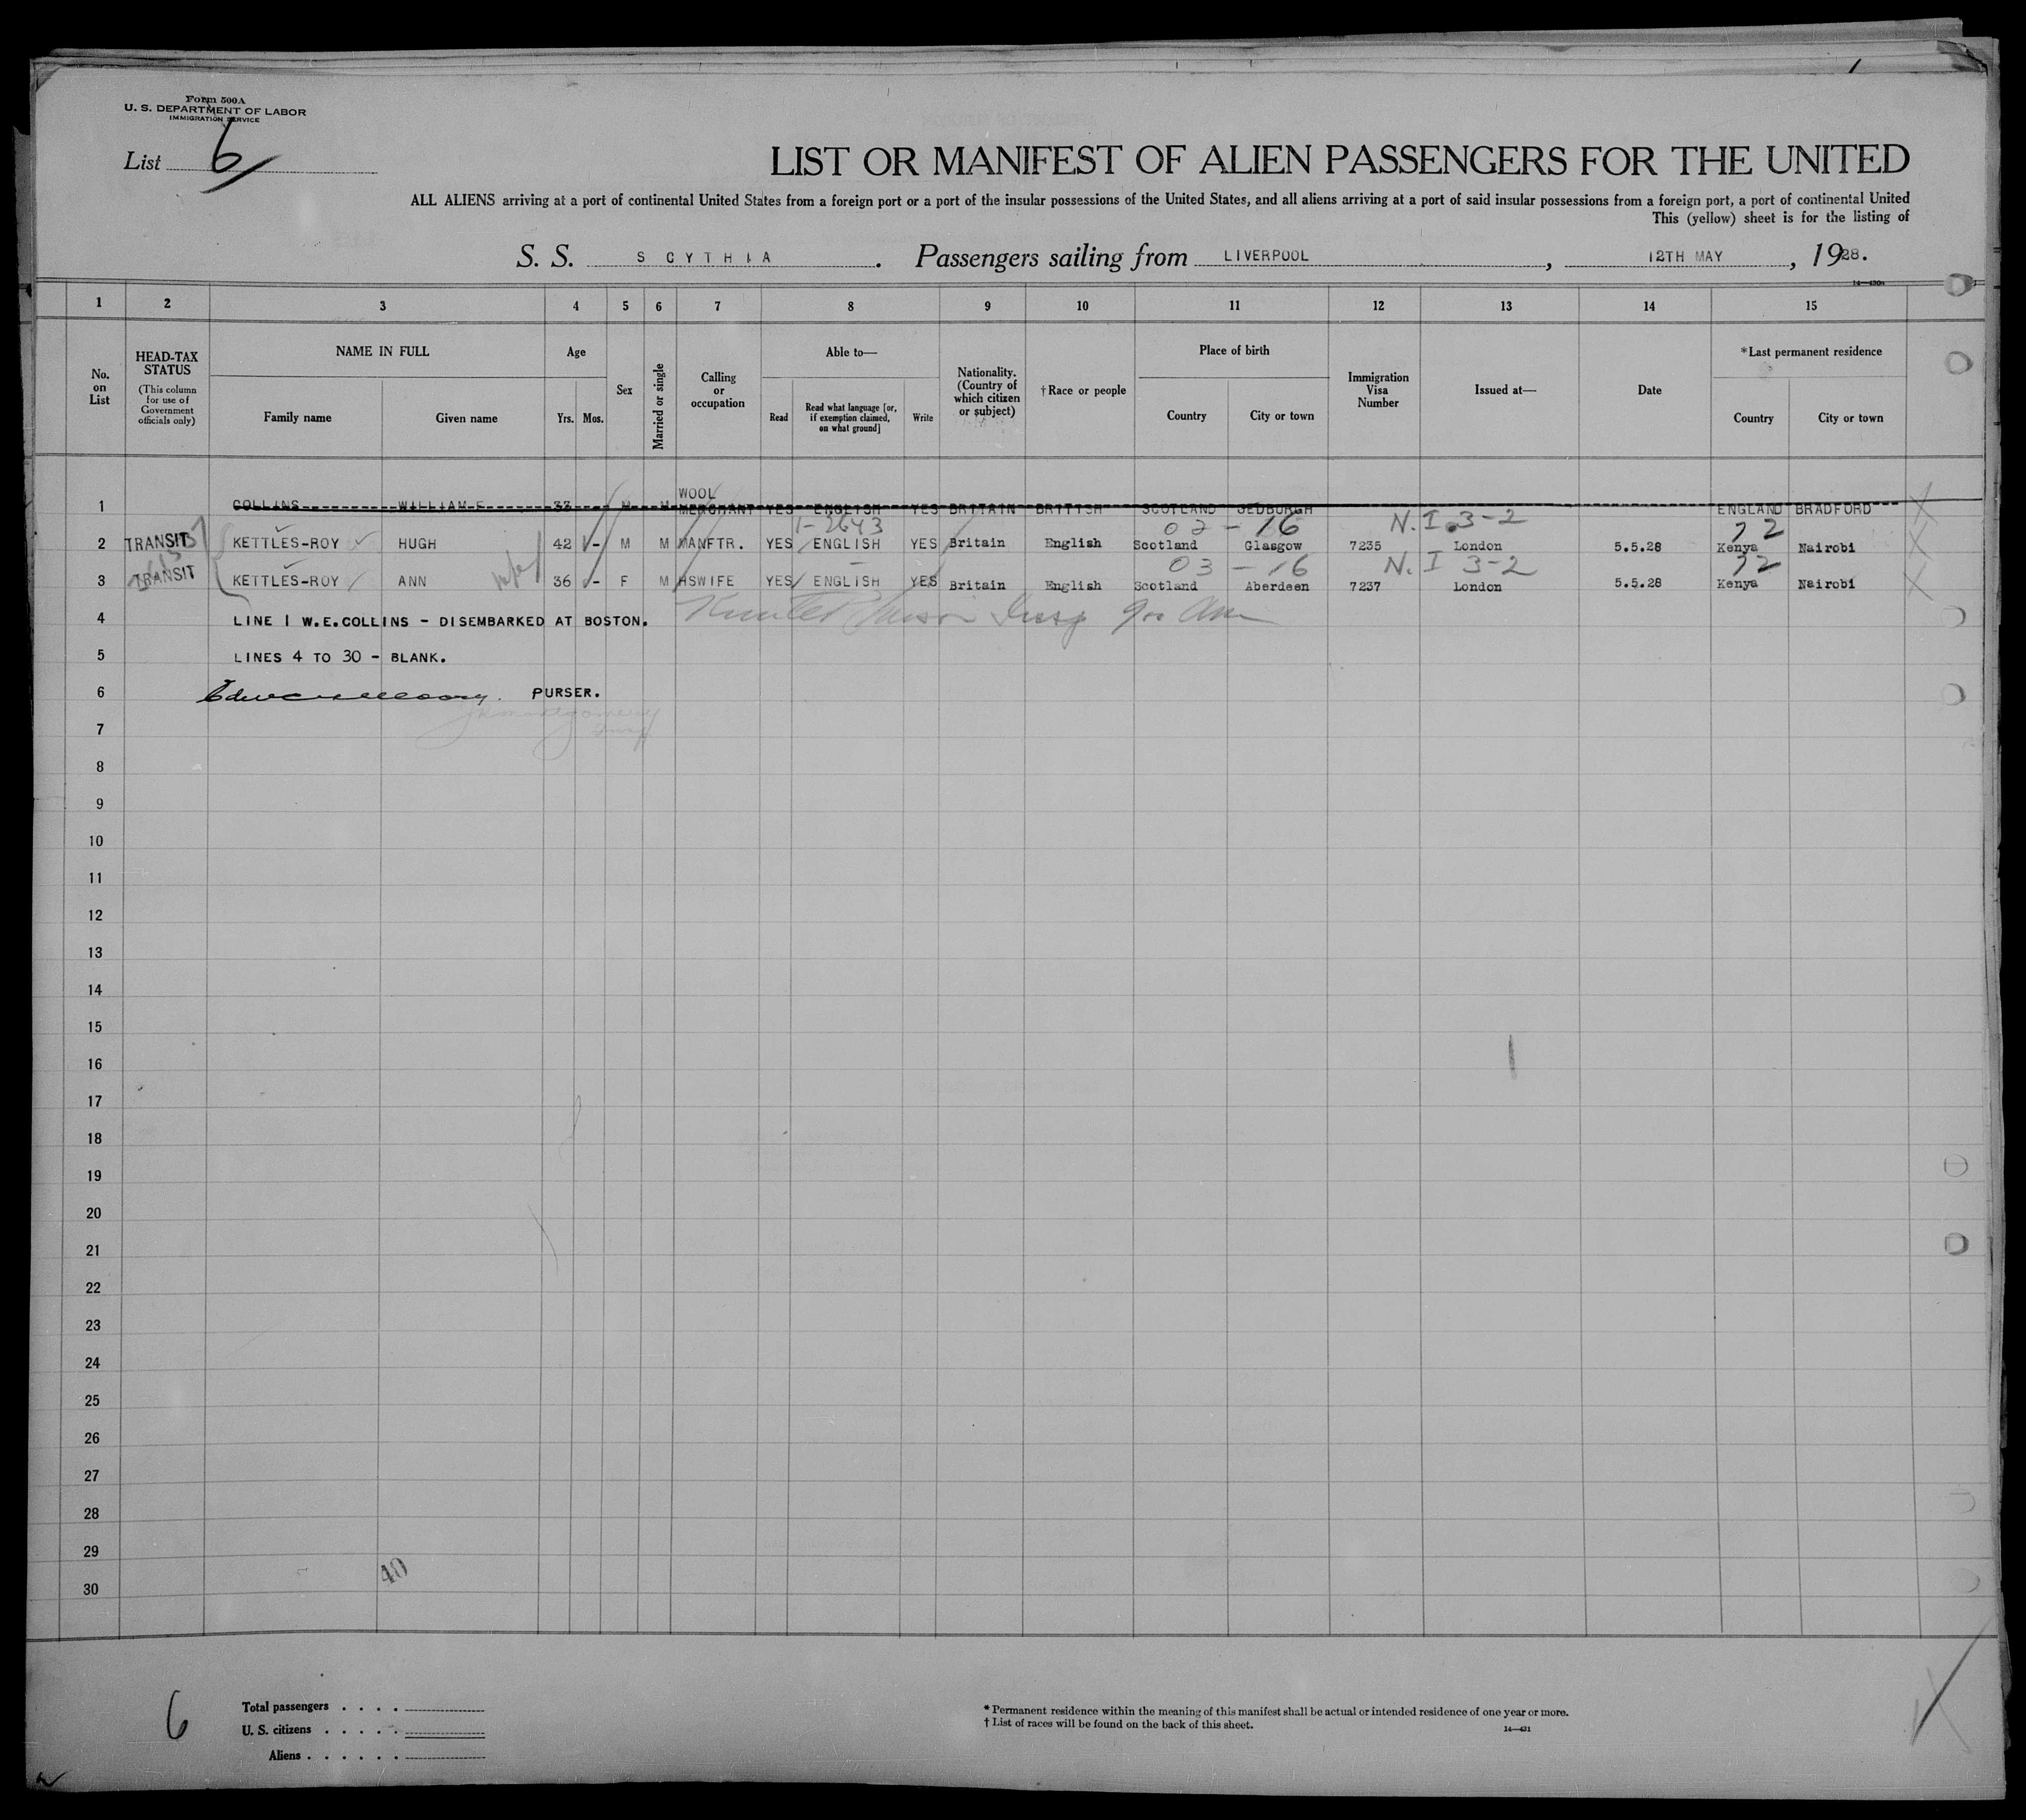 Form 500A
U. S. DEPARTMENT OF LABOR
IMMIGRATION SERVICE
List 6
LIST OR MANIFEST OF ALIEN PASSENGERS FOR THE UNITED
ALL ALIENS arriving at a port of continental United States from a foreign port or a port of the insular possessions of the United States, and all aliens arriving at a port of said insular possessions from a foreign port, a port of continental United
This (yellow) sheet is for the listing of
S. S. SCYTHIA. Passengers sailing from LIVERPOOL, 12TH MAY, 1928.
1 2 3 4 5 6 7 8 9 10 11 12 13 14 15
No. on List
HEAD-TAX STATUS
(This column for use of Government officials only)
NAME IN FULL
Family name Given name
Age
Yrs. Mos.
Sex
Married or single
Calling or occupation
Able to—
Read
Read what language [or, if exemption claimed, on what ground]
Write
Nationality. (Country of which citizen or subject)
†Race or people
Place of birth
Country City or town
Immigration Visa Number
Issued at—
Date
*Last permanent residence
Country City or town
1 COLLINS WILLIAM E 33 M M WOOL MERCHANT YES ENGLISH YES BRITAIN BRITISH SCOTLAND JEDBURGH ENGLAND BRADFORD
1-2643 02-16 N.I 3-2 72
2 TRANSIT KETTLES-ROY HUGH 42 - M M MANFTR. YES ENGLISH YES Britain English Scotland Glasgow 7235 London 5.5.28 Kenya Nairobi
03-16 N.I 3-2 72
3 TRANSIT KETTLES-ROY ANN 36 - F M HSWIFE YES ENGLISH YES Britain English Scotland Aberdeen 7237 London 5.5.28 Kenya Nairobi
4 LINE 1 W.E.COLLINS - DISEMBARKED AT BOSTON.
5 LINES 4 TO 30 - BLANK.
6 PURSER.
7
8
9
10
11
12
13
14
15
16
17
18
19
20
21
22
23
24
25
26
27
28
29
30
40
6
Total passengers . . . .
U. S. citizens . . . . .
Aliens . . . . . .
* Permanent residence within the meaning of this manifest shall be actual or intended residence of one year or more.
† List of races will be found on the back of this sheet.
14—431